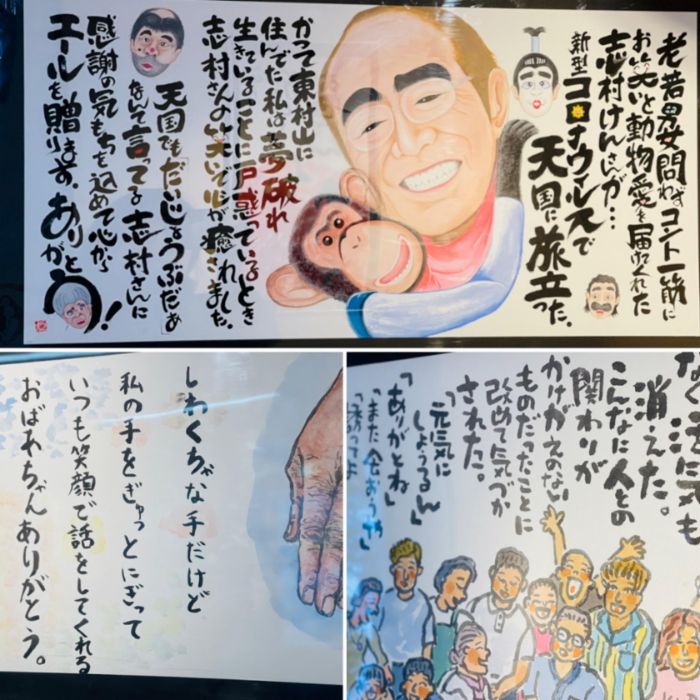 老若男女問わずコント一筋に
お笑いと動物愛を届けてくれた
志村けんさんが…
新型コロナウイルスで
天国に旅立った。
かつて東村山に
住んでた私は夢破れ
生きていることに戸惑っているとき
志村さんの笑いで心が癒されました。
天国でも「だいじょうぶだぁ」
なんて言ってる志村さんに
感謝の気もちを込めて心から
エールを贈ります。ありがとう!
しわくちゃな手だけど
私の手をぎゅっとにぎって
いつも笑顔で話をしてくれる
おばあちゃんありがとう。
なく活気も
消えた。
こんなに人との
関わりが
かけがえのない
ものだったことに
改めて気づか
された。
「元気に
しょうるん」
「ありがとね」
「また会おうや」